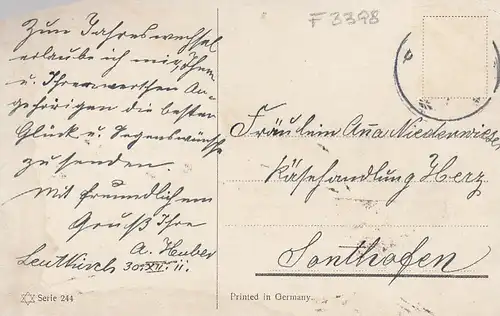 F3398
Zum Jahreswechsel
erlaube ich mir, Ihnen
u. Ihren werthen An-
gehörigen die besten
Glück u. Segenswünsche
zu senden.
Mit freundlichem
Gruß Ihre
A. Huber
Leutkirch 30. XII. 11.
Fräulein Ana
Käsehandlung Herz
Sonthofen
Serie 244
Printed in Germany.